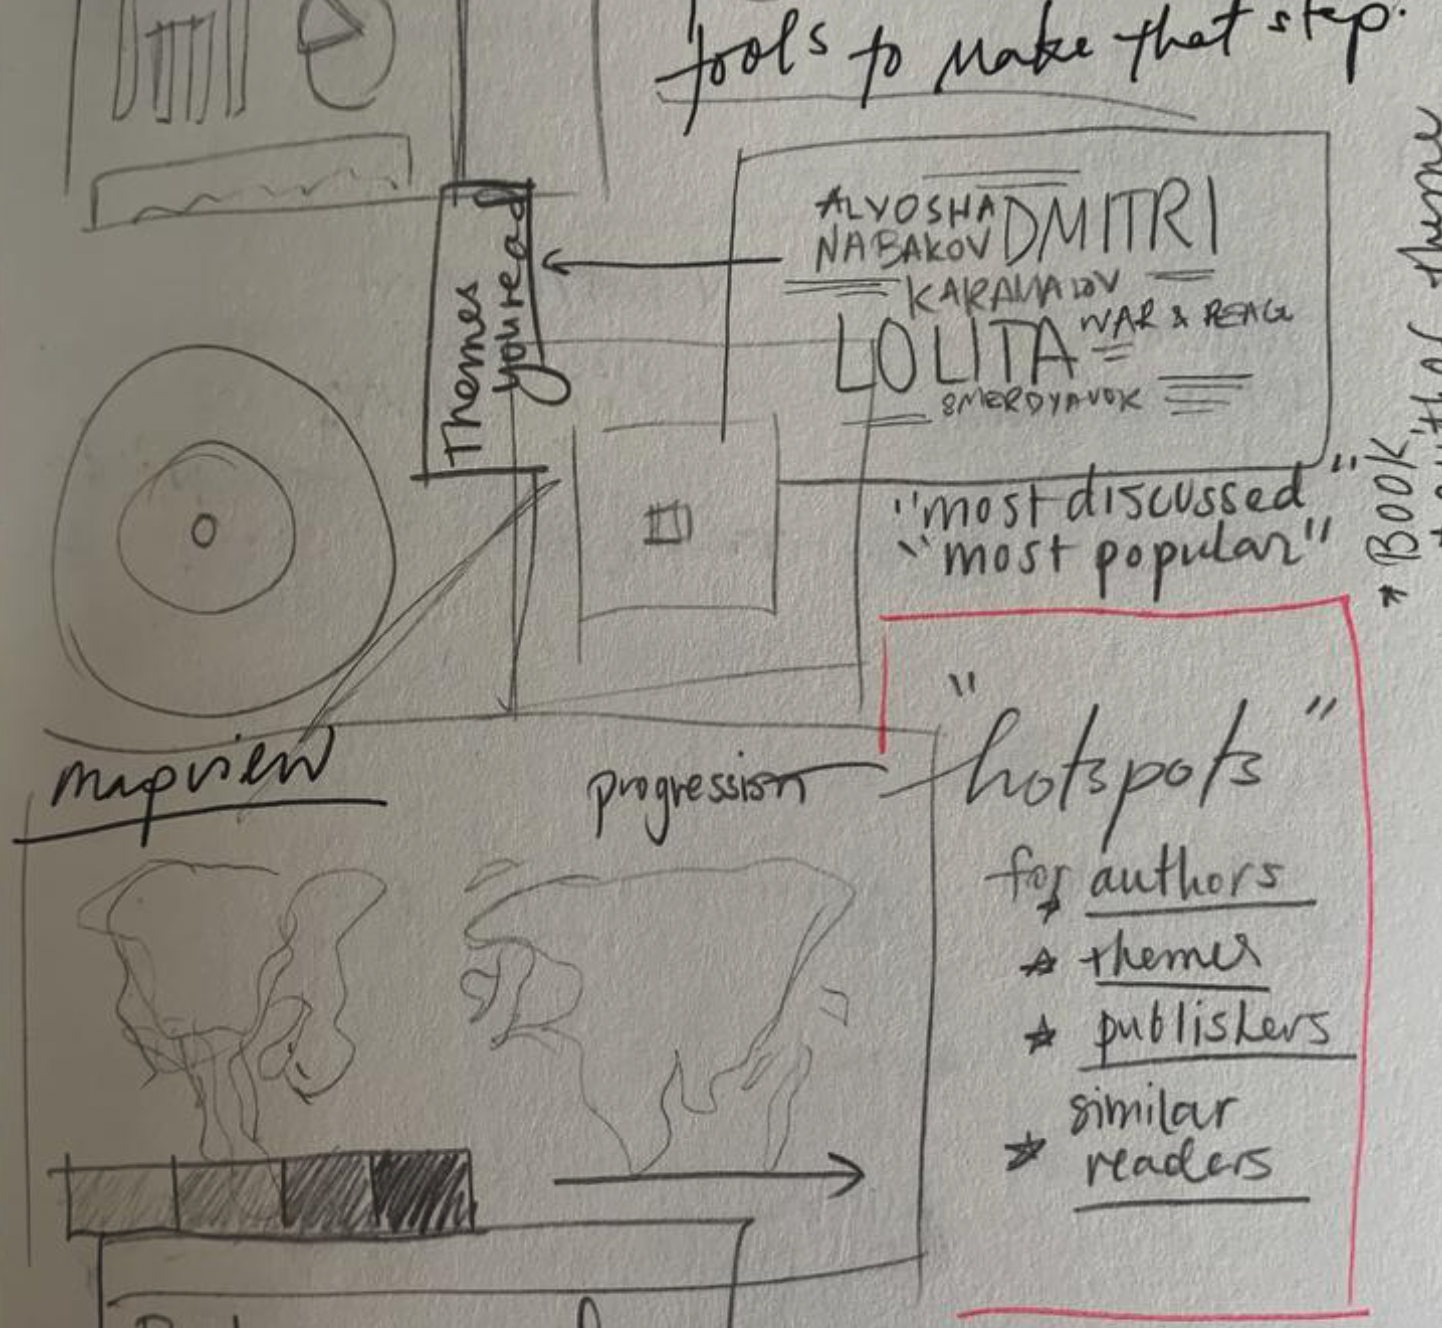 tools to make that step.
ALYOSHA DMITRI
NABAKOV
KARAMAZOV
LOLITA WAR & PEACE
SMERDYAVOK
Themes
you read
"most discussed"
"most popular"
* BOOK
theme
mapview
progression
"hotspots"
for authors
themes
publishers
similar
readers